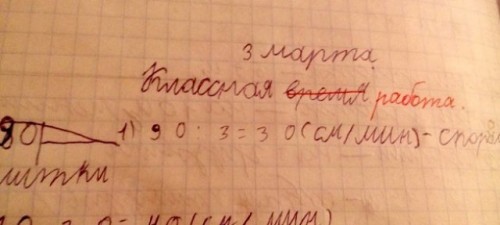 3 марта.
Классная время работа.
90 1) 90 : 3 = 30 (см/мин) -
итки